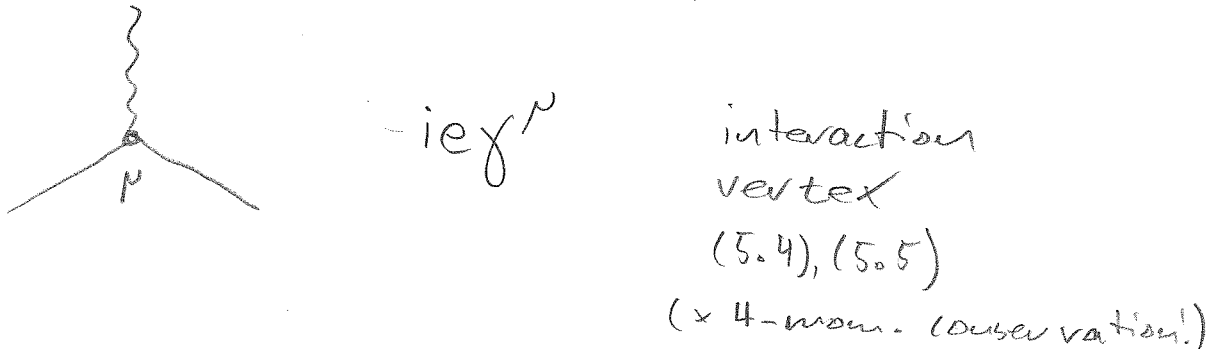 μ
-ieγ^μ
interaction
vertex
(5.4), (5.5)
(x 4-mom. conservation!)